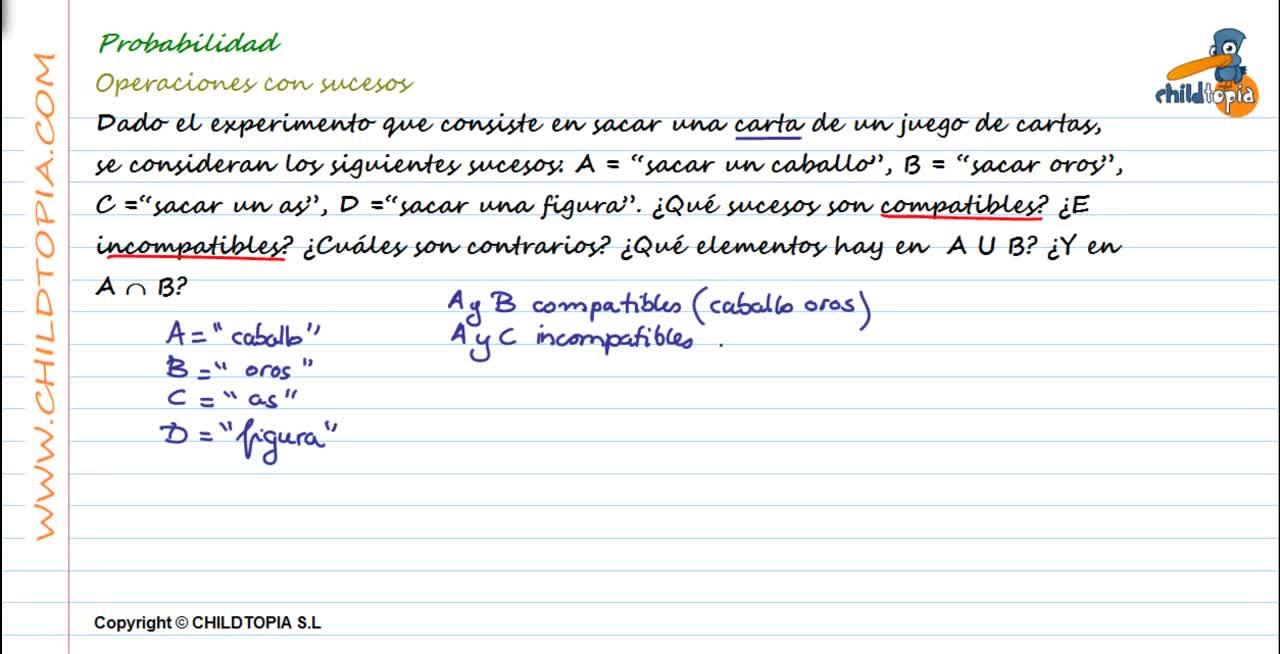 Probabilidad
Operaciones con sucesos
childtopia
Dado el experimento que consiste en sacar una carta de un juego de cartas,
se consideran los siguientes sucesos: A = “sacar un caballo”, B = “sacar oros”,
C =“sacar un as”, D =“sacar una figura”. ¿Qué sucesos son compatibles? ¿E
incompatibles? ¿Cuáles son contrarios? ¿Qué elementos hay en A U B? ¿Y en
A ∩ B?
A y B compatibles (caballo oros)
A y C incompatibles .
A = "caballo"
B = "oros"
C = "as"
D = "figura"
WWW.CHILDTOPIA.COM
Copyright © CHILDTOPIA S.L